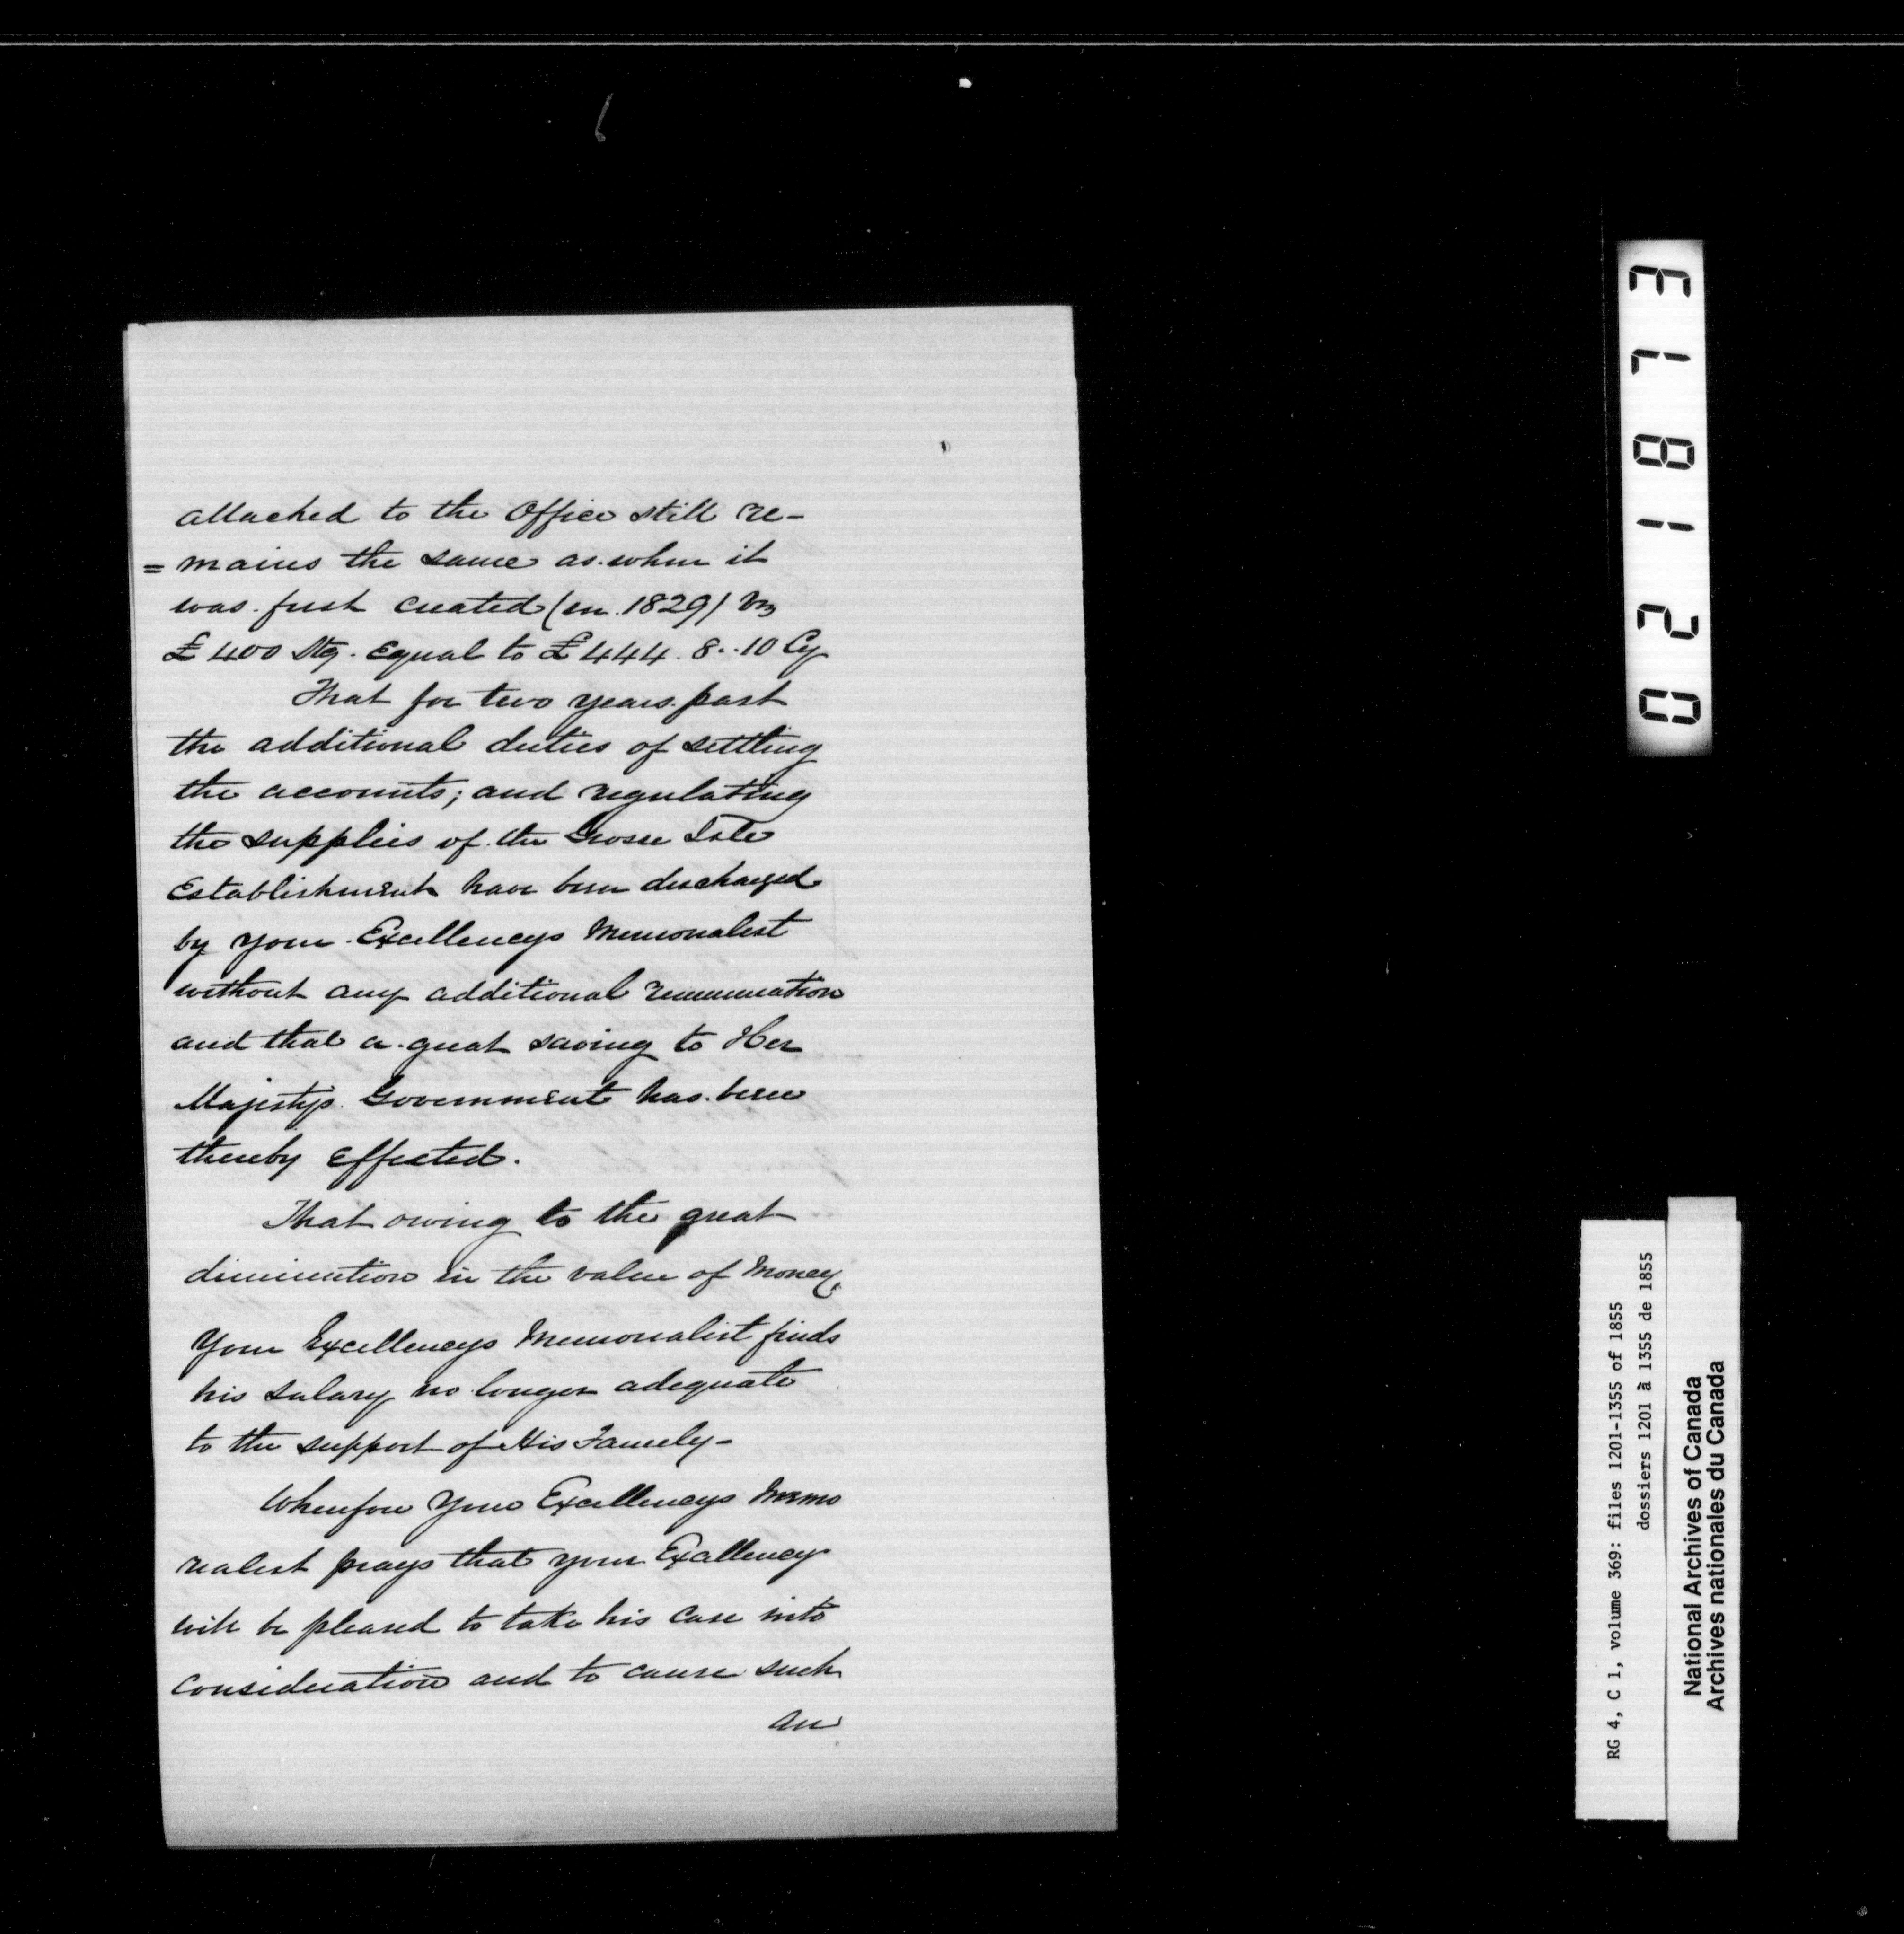 attached to the Office still re-
= mains the same as when it
was first created (in 1829) Viz
£400 Stg. Equal to £444. 8..10 Cy
That for two years past
the additional duties of settling
the accounts; and regulating
the supplies of the Grosse Isle
Establishment have been discharged
by your Excellencys Memorialist
without any additional remuneration
and that a great saving to Her
Majestys Government has been
thereby effected.
That owing to the great
diminution in the value of Money,
Your Excellencys Memorialist finds
his salary no longer adequate
to the support of His Family-
Wherefore Your Excellencys Memo
rialist prays that your Excellency
will be pleased to take his case into
consideration and to cause such
an
021813
RG 4, C 1, volume 369: files 1201-1355 of 1855
dossiers 1201 à 1355 de 1855
National Archives of Canada
Archives nationales du Canada